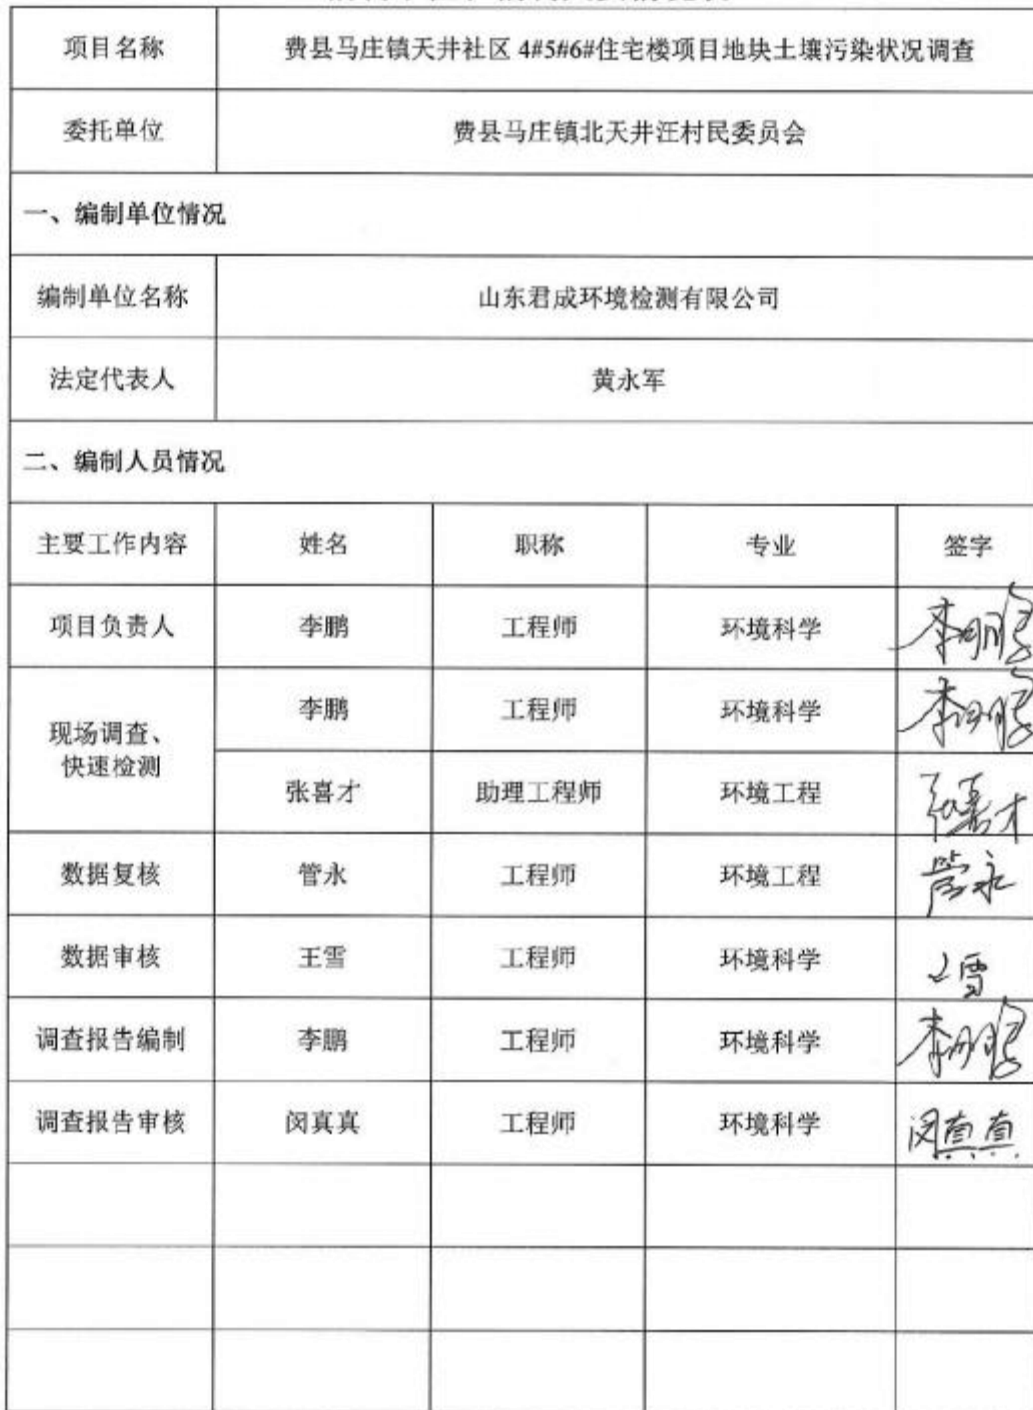 项目名称 费县马庄镇天井社区 4#5#6#住宅楼项目地块土壤污染状况调查
委托单位 费县马庄镇北天井汪村民委员会
一、编制单位情况
编制单位名称 山东君成环境检测有限公司
法定代表人 黄永军
二、编制人员情况
主要工作内容 姓名 职称 专业 签字
项目负责人 李鹏 工程师 环境科学 李鹏
现场调查、
快速检测
李鹏 工程师 环境科学 李鹏
张喜才 助理工程师 环境工程 张喜才
数据复核 管永 工程师 环境工程 管永
数据审核 王雪 工程师 环境科学 王雪
调查报告编制 李鹏 工程师 环境科学 李鹏
调查报告审核 闵真真 工程师 环境科学 闵真真